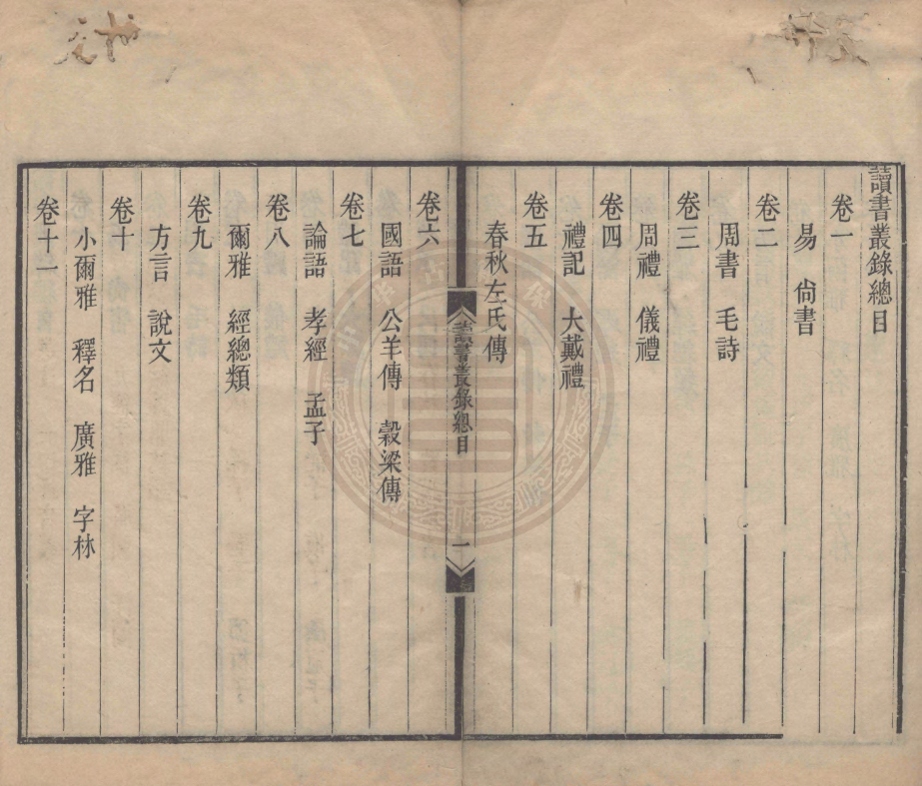 讀書叢錄總目
卷一
易　尙書
卷二
周書　毛詩
卷三
周禮　儀禮
卷四
禮記　大戴禮
卷五
春秋左氏傳
讀書叢錄總目　一
卷六
國語　公羊傳　穀梁傳
卷七
論語　孝經　孟子
卷八
爾雅　經總類
卷九
方言　說文
卷十
小爾雅　釋名　廣雅　字林
卷十一